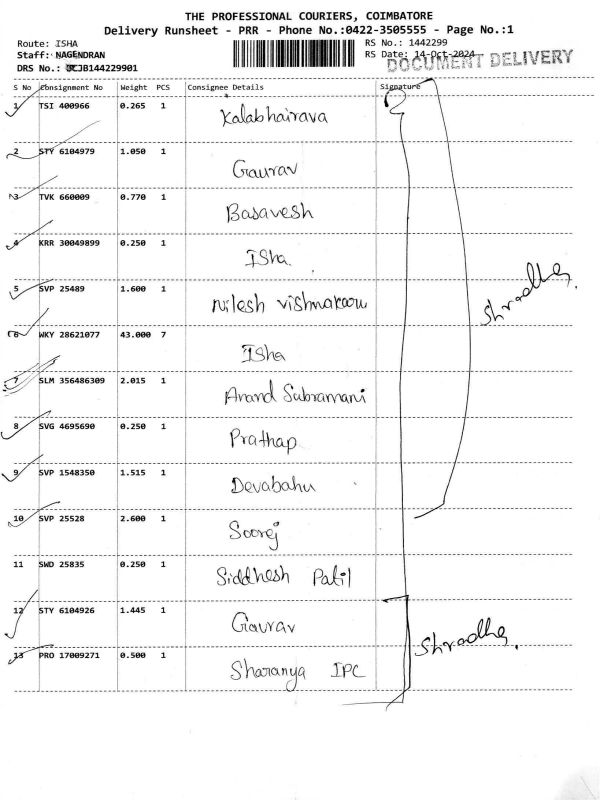 THE PROFESSIONAL COURIERS, COIMBATORE
Delivery Runsheet - PRR - Phone No.:0422-3505555 - Page No.:1
Route: ISHA
RS No.: 1442299
Staff: NAGENDRAN
RS Date: 14-Oct-2024
DOCUMENT DELIVERY
DRS No.: JB144229901
S No Consignment No Weight PCS Consignee Details Signature
1 TSI 400966 0.265 1 Kalabhairava
2 STY 6104979 1.050 1 Gaurav
3 TVK 660009 0.770 1 Basavesh
4 KRR 30049899 0.250 1 ISha.
5 SVP 25489 1.600 1 Nilesh
Shradha.
6 WKY 28621077 43.000 7 ISha
7 SLM 356486309 2.015 1 Anand Subramani
8 SVG 4695690 0.250 1 Prathap
9 SVP 1548350 1.515 1 Devabahu
10 SVP 25528 2.600 1 Sooraj
11 SWD 25835 0.250 1 Siddhesh Patil
12 STY 6104926 1.445 1 Gaurav
Shradha.
13 PRO 17009271 0.500 1 Sharanya IPC